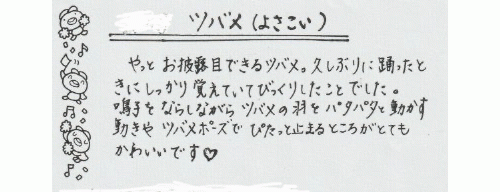 ツバメ（よさこい）
やっと お披露目できるツバメ。久しぶりに踊ったと
きにしっかり覚えていてびっくりしたことでした。
鳴子をならしながら ツバメの羽をパタパタと動かす
動きや ツバメポーズで ぴたっと止まるところがとても
かわいいです♡